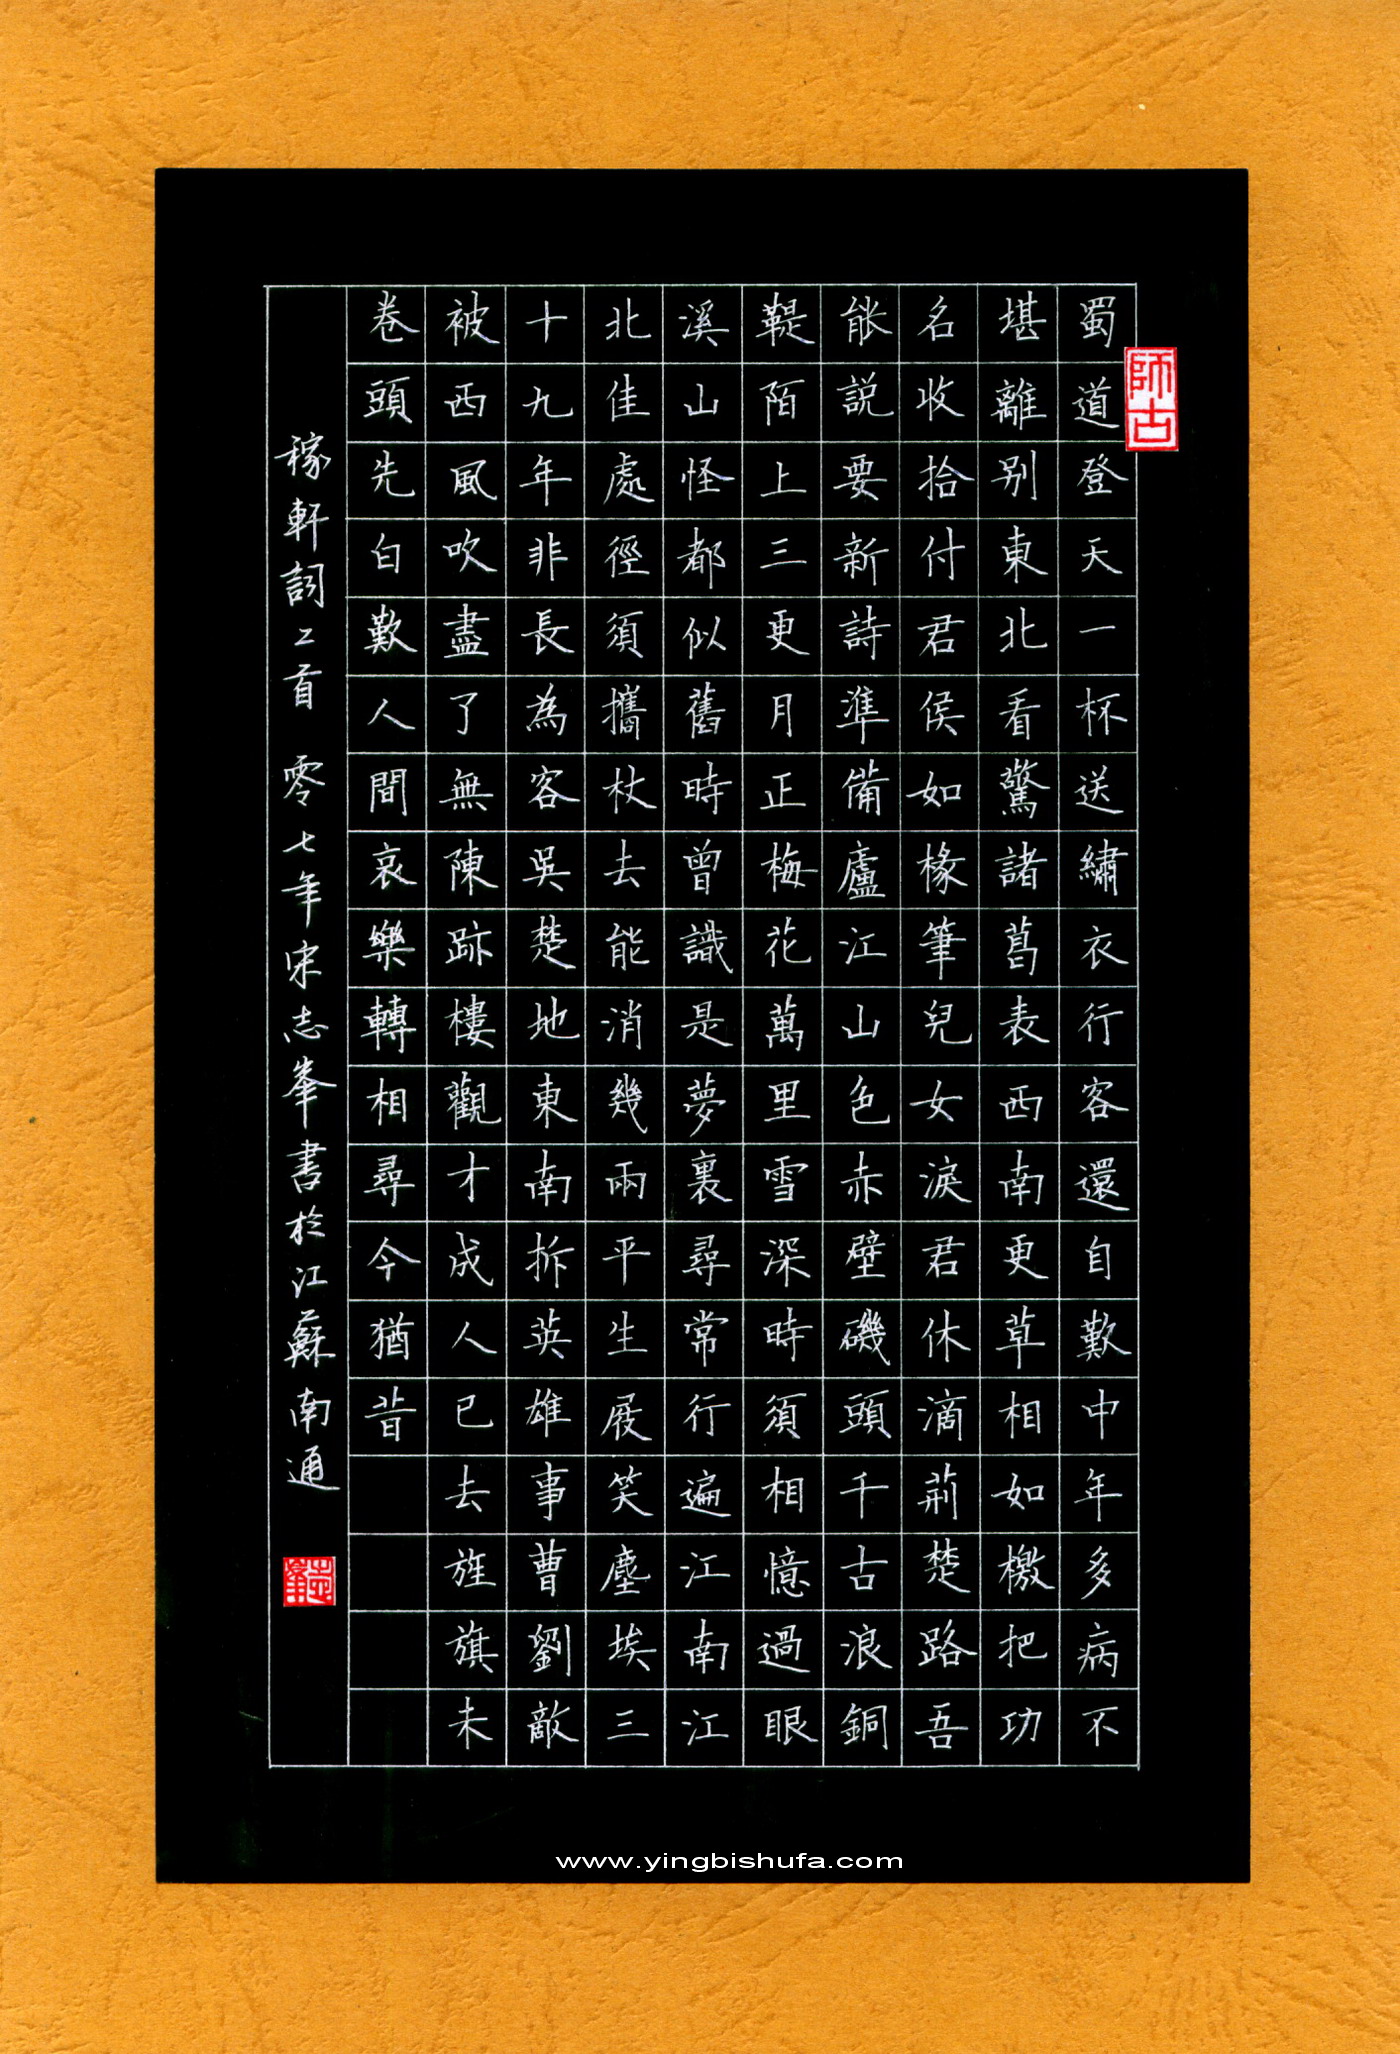 蜀道登天一杯送繡衣行客還自歎中年多病不
堪離別東北看驚諸葛表西南更草相如檄把功
名收拾付君侯如椽筆兒女淚君休滴荊楚路吾
能說要新詩準備廬江山色赤壁磯頭千古浪銅
鞮陌上三更月正梅花萬里雪深時須相憶過眼
溪山怪都似舊時曾識是夢裏尋常行遍江南江
北佳處徑須攜杖去能消幾兩平生屐笑塵埃三
十九年非長為客吳楚地東南拆英雄事曹劉敵
被西風吹盡了無陳跡樓觀才成人已去旌旗未
卷頭先白歎人間哀樂轉相尋今猶昔
稼軒詞二首 零七年宋志峯書於江蘇南通
師古
www.yingbishufa.com